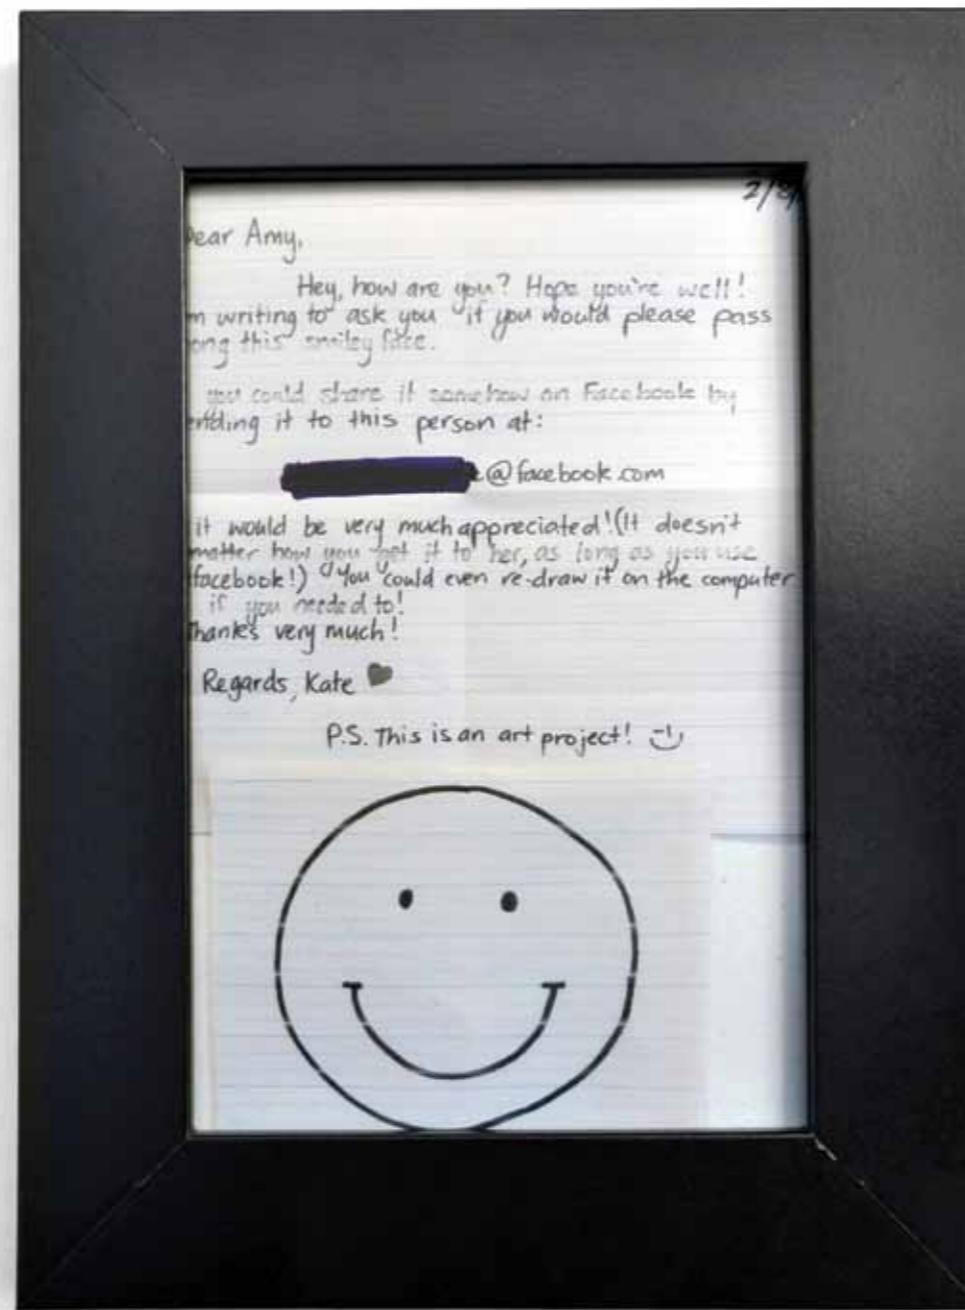 2/8/
ear Amy,
Hey, how are you? Hope you're well!
m writing to ask you if you would please pass
ong this smiley face.
you could share it somehow on Facebook by
ending it to this person at:
@facebook.com
it would be very much appreciated! (It doesn't
matter how you get it to her, as long as you use
facebook!) You could even re-draw it on the computer
if you needed to!
Thanks very much!
Regards, Kate ♥
P.S. This is an art project! :-)